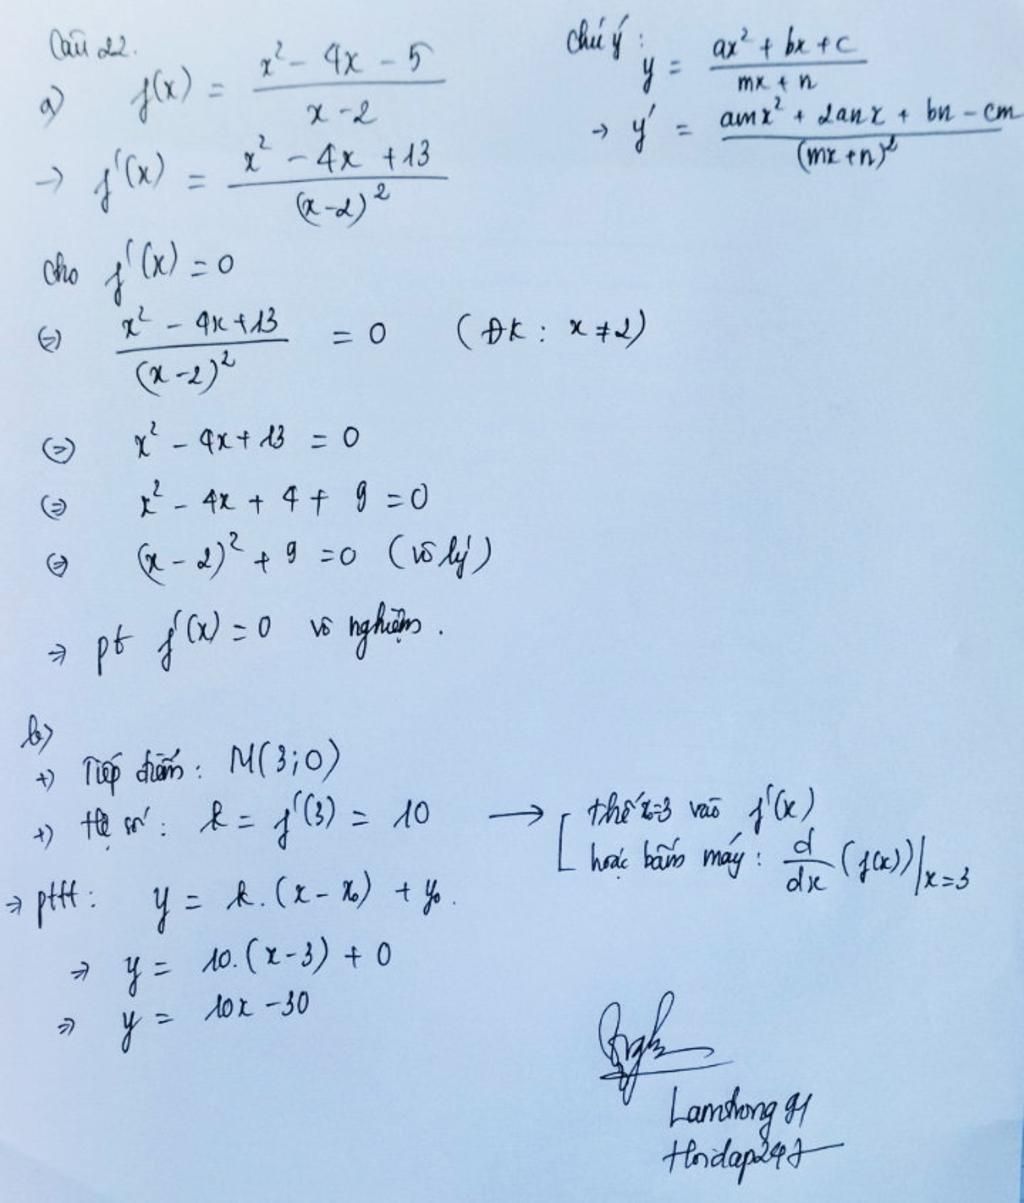 Câu 22.
a) f(x) = (x² - 4x - 5)/(x - 2)
→ f'(x) = (x² - 4x + 13)/(x-2)²
chú ý: y = (ax² + bx + c)/(mx + n)
→ y' = (amx² + 2anx + bn - cm)/(mx+n)²
cho f'(x) = 0
⇔ (x² - 4x + 13)/(x-2)² = 0 (ĐK: x ≠ 2)
⇔ x² - 4x + 13 = 0
⇔ x² - 4x + 4 + 9 = 0
⇔ (x - 2)² + 9 = 0 (vô lý)
⇒ pt f'(x) = 0 vô nghiệm.
b)
+) Tiếp điểm: M(3;0)
+) Hệ số: k = f'(3) = 10 → [ thế x=3 vào f'(x)
hoặc bấm máy: d/dx (f(x))|x=3
⇒ pttt: y = k.(x - x₀) + y₀.
⇒ y = 10.(x-3) + 0
⇒ y = 10x - 30
Hoidap247